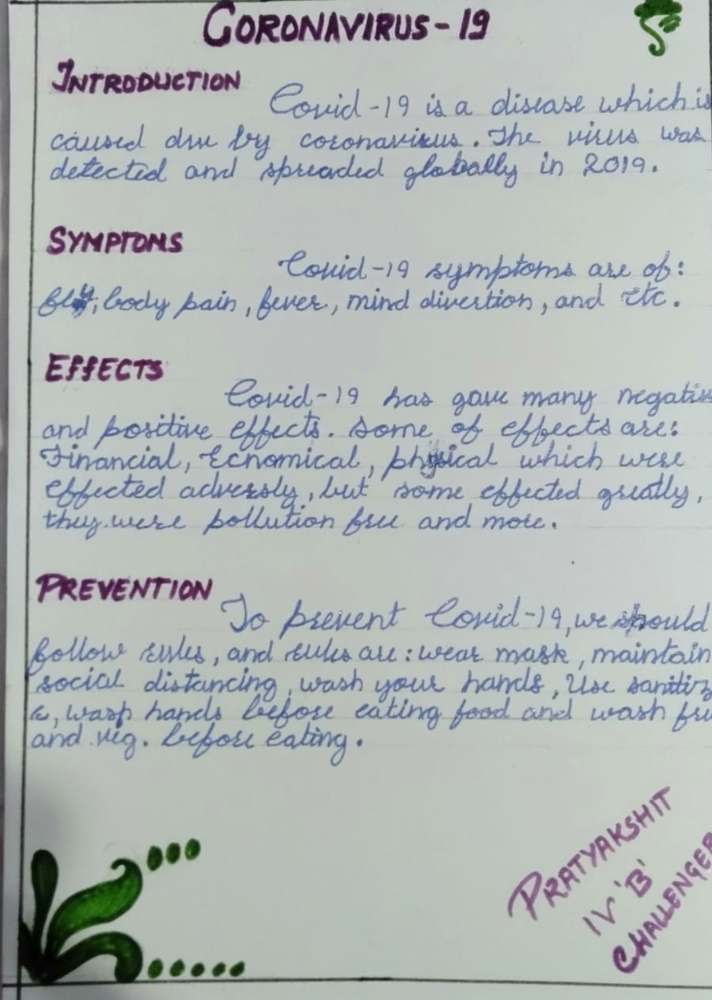 CORONAVIRUS-19
INTRODUCTION
Covid-19 is a disease which is
caused due by coronavirus. The virus was
detected and spreaded globally in 2019.
SYMPTOMS
Covid-19 symptoms are of:
body pain, fever, mind divertion, and etc.
EFFECTS
Covid-19 has gave many negativ
and positive effects. Some of effects are:
Financial, Ecnomical, physical which were
effected adversly, but some effected greatly,
they were pollution free and more.
PREVENTION
To prevent Covid-19, we should
follow rules, and rules are: wear mask, maintain
social distancing, wash your hands, Use sanitiz
r, wasp hands before eating food and wash fru
and veg. before eating.
PRATYAKSHIT
IV 'B'
CHALLENGER